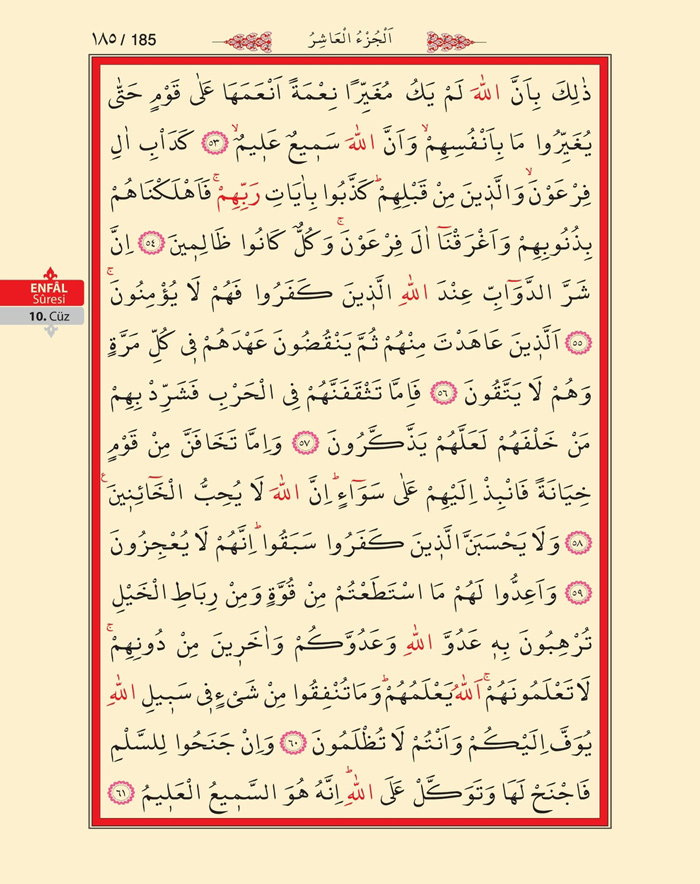 ١٨٥ / 185
اَلْجُزْءُ الْعَاشِرُ
ذٰلِكَ بِاَنَّ اللّٰهَ لَمْ يَكُ مُغَيِّرًا نِعْمَةً اَنْعَمَهَا عَلٰى قَوْمٍ حَتّٰى
يُغَيِّرُوا مَا بِاَنْفُسِهِمْۙ وَاَنَّ اللّٰهَ سَمٖيعٌ عَلٖيمٌۙ ﴿٥٣﴾ كَدَاْبِ اٰلِ
فِرْعَوْنَۙ وَالَّذٖينَ مِنْ قَبْلِهِمْؕ كَذَّبُوا بِاٰيَاتِ رَبِّهِمْۚ فَاَهْلَكْنَاهُمْ
بِذُنُوبِهِمْ وَاَغْرَقْنَٓا اٰلَ فِرْعَوْنَۚ وَكُلٌّ كَانُوا ظَالِمٖينَ ﴿٥٤﴾ اِنَّ
شَرَّ الدَّوَٓابِّ عِنْدَ اللّٰهِ الَّذٖينَ كَفَرُوا فَهُمْ لَا يُؤْمِنُونَۚ
﴿٥٥﴾ اَلَّذٖينَ عَاهَدْتَ مِنْهُمْ ثُمَّ يَنْقُضُونَ عَهْدَهُمْ فٖى كُلِّ مَرَّةٍ
وَهُمْ لَا يَتَّقُونَ ﴿٥٦﴾ فَاِمَّا تَثْقَفَنَّهُمْ فِى الْحَرْبِ فَشَرِّدْ بِهِمْ
مَنْ خَلْفَهُمْ لَعَلَّهُمْ يَذَّكَّرُونَ ﴿٥٧﴾ وَاِمَّا تَخَافَنَّ مِنْ قَوْمٍ
خِيَانَةً فَانْبِذْ اِلَيْهِمْ عَلٰى سَوَٓاءٍؕ اِنَّ اللّٰهَ لَا يُحِبُّ الْخَٓائِنٖينَࣖ
﴿٥٨﴾ وَلَا يَحْسَبَنَّ الَّذٖينَ كَفَرُوا سَبَقُواؕ اِنَّهُمْ لَا يُعْجِزُونَ
﴿٥٩﴾ وَاَعِدُّوا لَهُمْ مَا اسْتَطَعْتُمْ مِنْ قُوَّةٍ وَمِنْ رِبَاطِ الْخَيْلِ
تُرْهِبُونَ بِهٖ عَدُوَّ اللّٰهِ وَعَدُوَّكُمْ وَاٰخَرٖينَ مِنْ دُونِهِمْۚ
لَا تَعْلَمُونَهُمْۚ اَللّٰهُ يَعْلَمُهُمْؕ وَمَا تُنْفِقُوا مِنْ شَىْءٍ فٖى سَبٖيلِ اللّٰهِ
يُوَفَّ اِلَيْكُمْ وَاَنْتُمْ لَا تُظْلَمُونَ ﴿٦٠﴾ وَاِنْ جَنَحُوا لِلسَّلْمِ
فَاجْنَحْ لَهَا وَتَوَكَّلْ عَلَى اللّٰهِؕ اِنَّهُ هُوَ السَّمٖيعُ الْعَلٖيمُ ﴿٦١﴾
ENFÂL
Sûresi
10. Cüz